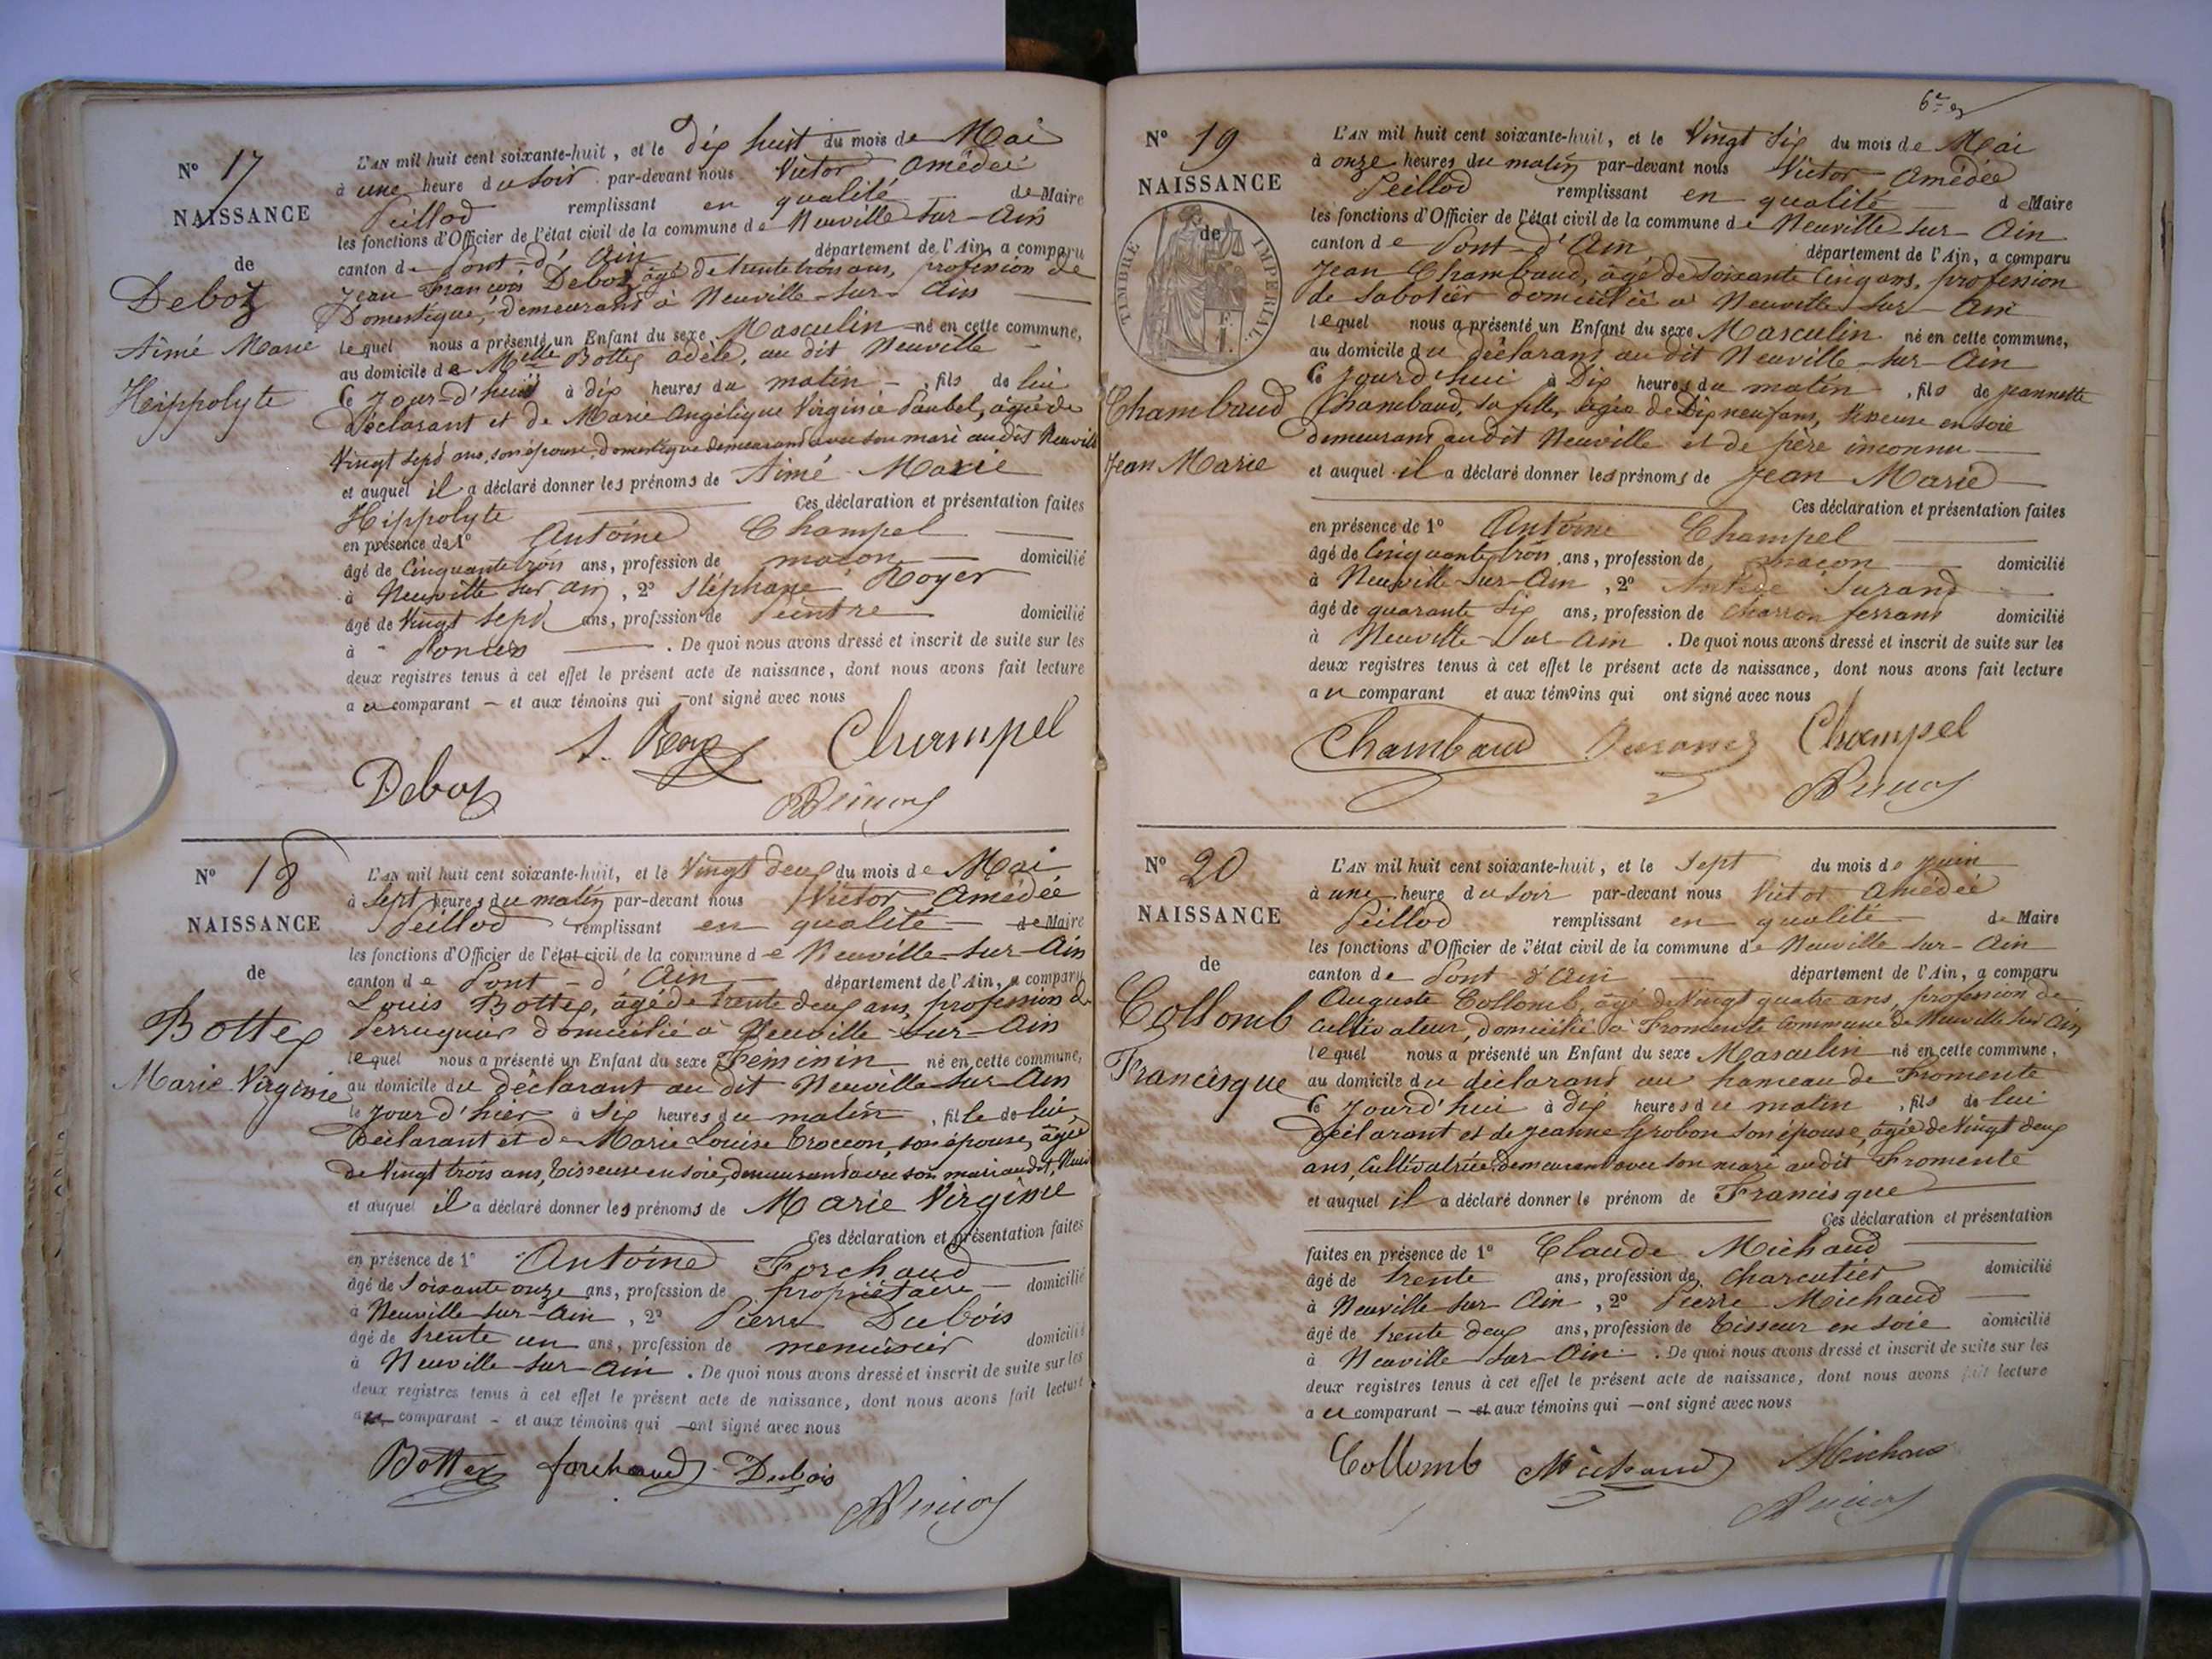 N° 17
NAISSANCE
de
Deboz
Aimé Marie
Hippolyte
L'AN mil huit cent soixante-huit, et le dix huit du mois de Mai
à une heure du soir par-devant nous Victor Amédée
Peillod remplissant en qualité de Maire
les fonctions d'Officier de l'état civil de la commune de Neuville-sur-Ain
canton de Pont-d'Ain département de l'Ain, a comparu
Jean François Deboz âgé de trente trois ans, profession de
Domestique, demeurant à Neuville-sur-Ain
lequel nous a présenté un Enfant du sexe Masculin né en cette commune,
au domicile de Melle Bottex adèle, au dit Neuville
Ce Jour-d'hui à dix heures du matin, fils de lui
Déclarant et de Marie Angélique Virginie Paubel, âgée de
Vingt sept ans, son épouse, Domestique demeurant avec son mari audit Neuville
et auquel il a déclaré donner les prénoms de Aimé Marie
Hippolyte Ces déclaration et présentation faites
en présence de 1° Antoine Champel
âgé de Cinquante trois ans, profession de maçon domicilié
à Neuville sur ain, 2° Stéphane Royer
âgé de Vingt sept ans, profession de Peintre domicilié
à Poncin. De quoi nous avons dressé et inscrit de suite sur les
deux registres tenus à cet effet le présent acte de naissance, dont nous avons fait lecture
au comparant et aux témoins qui ont signé avec nous
Champel
Deboz
N° 18
NAISSANCE
de
Bottex
Marie Virginie
L'AN mil huit cent soixante-huit, et le Vingt deux du mois de Mai
à Sept heures du matin par-devant nous Victor Amédée
Peillod remplissant en qualité de Maire
les fonctions d'Officier de l'état civil de la commune de Neuville-sur-Ain
canton de Pont-d'Ain département de l'Ain, a comparu
Louis Bottex, âgé de trente deux ans, profession de
Perruquier domicilié à Neuville-sur-Ain
lequel nous a présenté un Enfant du sexe Féminin né en cette commune,
au domicile du déclarant au dit Neuville-sur-Ain
le Jour d'hier à Six heures du matin, fille de lui
Déclarant et de Marie Louise Troccon, son épouse, âgée
de Vingt trois ans, Tisseuse en soie, demeurant avec son mari audit Neuv
et auquel il a déclaré donner les prénoms de Marie Virginie
Ces déclaration et présentation faites
en présence de 1° Antoine Forchaud
âgé de Soixante onze ans, profession de propriétaire domicilié
à Neuville-sur-Ain, 2° Pierre Dubois
âgé de trente un ans, profession de menuisier domicilié
à Neuville-sur-Ain. De quoi nous avons dressé et inscrit de suite sur les
deux registres tenus à cet effet le présent acte de naissance, dont nous avons fait lecture
au comparant et aux témoins qui ont signé avec nous
Bottex forchaud Dubois
6e
N° 19
NAISSANCE
de
TIMBRE IMPERIAL
Chambaud
Jean Marie
L'AN mil huit cent soixante-huit, et le Vingt Six du mois de Mai
à onze heures du matin par-devant nous Victor Amédée
Peillod remplissant en qualité de Maire
les fonctions d'Officier de l'état civil de la commune de Neuville-sur-Ain
canton de Pont-d'Ain département de l'Ain, a comparu
Jean Chambaud, âgé de Soixante Cinq ans, profession
de Sabotier domicilié à Neuville-sur-Ain
lequel nous a présenté un Enfant du sexe Masculin né en cette commune,
au domicile du déclarant au dit Neuville-sur-Ain
Ce Jourd'hui à Dix heures du matin, fils de Jeannette
Chambaud, sa fille, âgée de Dix neuf ans, Tisseuse en soie
demeurant audit Neuville et de père inconnu
et auquel il a déclaré donner les prénoms de Jean Marie
Ces déclaration et présentation faites
en présence de 1° Antoine Champel
âgé de Cinquante trois ans, profession de maçon domicilié
à Neuville-sur-Ain, 2° Durand
âgé de quarante Six ans, profession de Charron ferrant domicilié
à Neuville-Sur-Ain. De quoi nous avons dressé et inscrit de suite sur les
deux registres tenus à cet effet le présent acte de naissance, dont nous avons fait lecture
au comparant et aux témoins qui ont signé avec nous
Chambaud Durand Champel
N° 20
NAISSANCE
de
Collomb
Francisque
L'AN mil huit cent soixante-huit, et le Sept du mois de Juin
à une heure du soir par-devant nous Victor Amédée
Peillod remplissant en qualité de Maire
les fonctions d'Officier de l'état civil de la commune de Neuville-sur-Ain
canton de Pont-d'Ain département de l'Ain, a comparu
Auguste Collomb, âgé de Vingt quatre ans, profession de
Cultivateur, domicilié à Fromente Commune de Neuville sur Ain
lequel nous a présenté un Enfant du sexe Masculin né en cette commune,
au domicile du déclarant au hameau de Fromente
Ce Jourd'hui à dix heures du matin, fils de lui
Déclarant et de Jeanne Grobon son épouse, âgée de Vingt deux
ans, Cultivatrice demeurant avec son mari audit Fromente
et auquel il a déclaré donner le prénom de Francisque
Ces déclaration et présentation
faites en présence de 1° Claude Michaud
âgé de trente ans, profession de Charcutier domicilié
à Neuville-sur-Ain, 2° Pierre Michaud
âgé de trente deux ans, profession de Tisseur en soie domicilié
à Neuville-Sur-Ain. De quoi nous avons dressé et inscrit de suite sur les
deux registres tenus à cet effet le présent acte de naissance, dont nous avons fait lecture
au comparant et aux témoins qui ont signé avec nous
Collomb Michaud Michaud